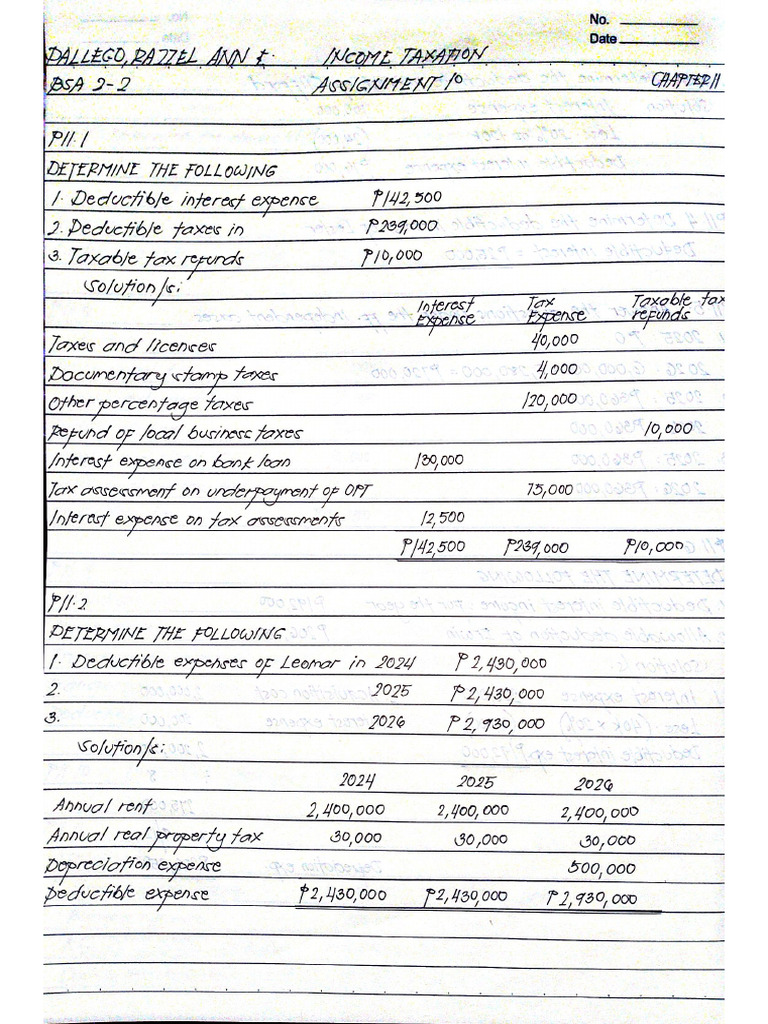 No.
Date
DALLEGO, RAZZEL ANN E. INCOME TAXATION
BSA 2-2 ASSIGNMENT 10 CHAPTER 11
P11.1
DETERMINE THE FOLLOWING
1. Deductible interest expense ₱142,500
2. Deductible taxes in ₱239,000
3. Taxable tax refunds ₱10,000
Solution/s:
Interest Expense Tax Expense Taxable tax refunds
Taxes and licenses 40,000
Documentary stamp taxes 4,000
Other percentage taxes 120,000
Refund of local business taxes 10,000
Interest expense on bank loan 130,000
Tax assessment on underpayment of OPT 75,000
Interest expense on tax assessments 12,500
₱142,500 ₱239,000 ₱10,000
P11.2
DETERMINE THE FOLLOWING
1. Deductible expenses of Leomar in 2024 ₱2,430,000
2. 2025 ₱2,430,000
3. 2026 ₱2,930,000
Solution/s:
2024 2025 2026
Annual rent 2,400,000 2,400,000 2,400,000
Annual real property tax 30,000 30,000 30,000
Depreciation expense 500,000
Deductible expense ₱2,430,000 ₱2,430,000 ₱2,930,000